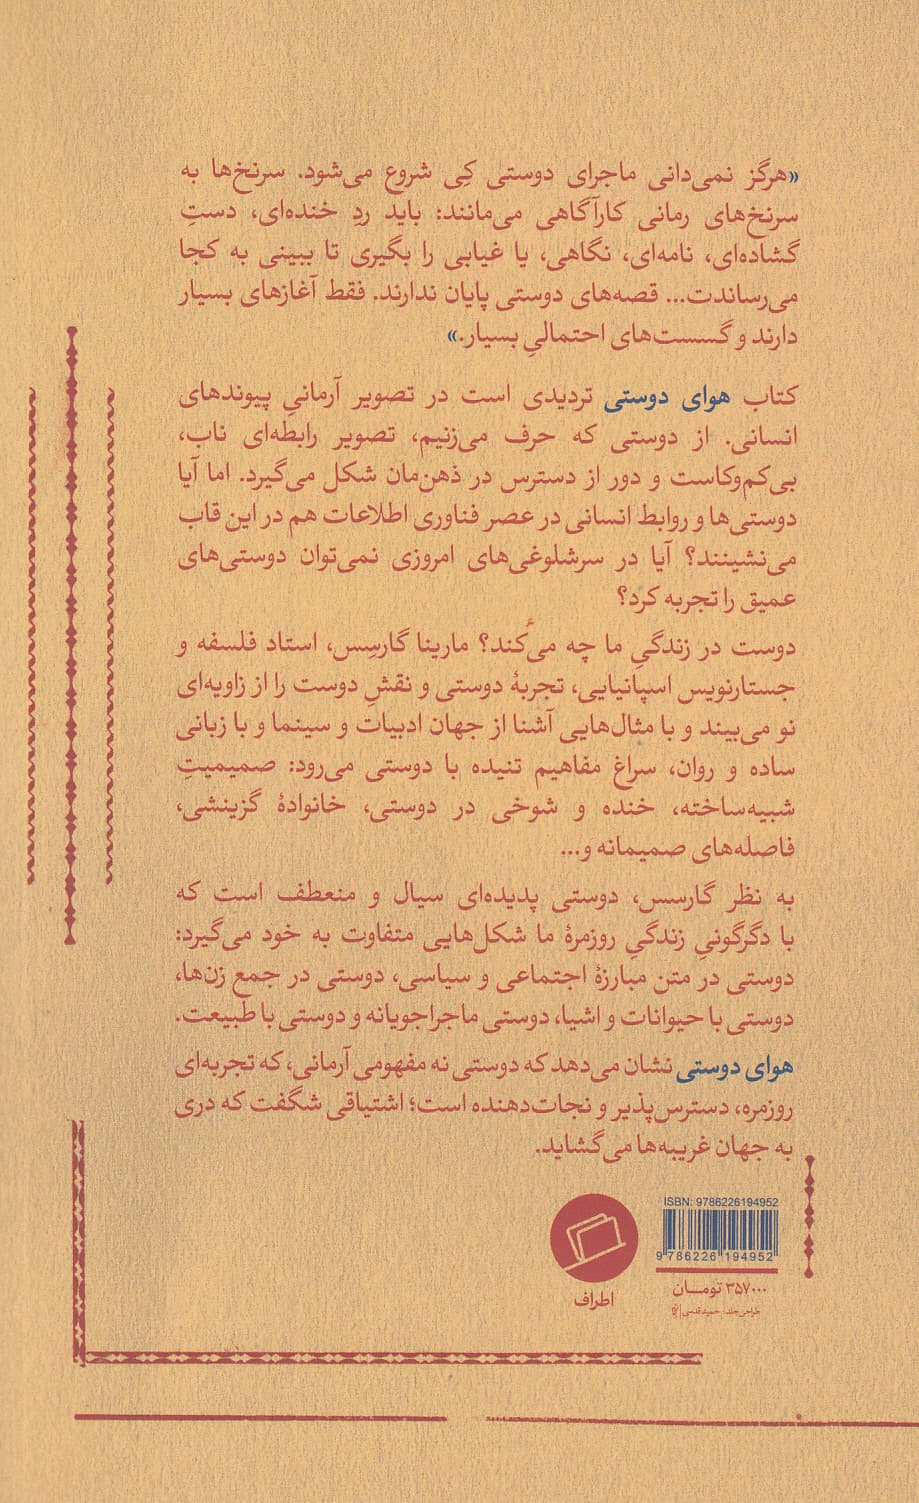 «هرگز نمی‌دانی ماجرای دوستی کِی شروع می‌شود. سرنخ‌ها به
سرنخ‌های رمانی کارآگاهی می‌مانند: باید ردِ خنده‌ای، دستِ
گشاده‌ای، نامه‌ای، نگاهی، یا غیابی را بگیری تا ببینی به کجا
می‌رساندت... قصه‌های دوستی پایان ندارند. فقط آغازهای بسیار
دارند و گسست‌های احتمالیِ بسیار.»
کتاب هوای دوستی تردیدی است در تصویر آرمانیِ پیوندهای
انسانی. از دوستی که حرف می‌زنیم، تصویر رابطه‌ای ناب،
بی‌کم‌وکاست و دور از دسترس در ذهن‌مان شکل می‌گیرد. اما آیا
دوستی‌ها و روابط انسانی در عصر فناوری اطلاعات هم در این قاب
می‌نشینند؟ آیا در سرشلوغی‌های امروزی نمی‌توان دوستی‌های
عمیق را تجربه کرد؟
دوست در زندگیِ ما چه می‌کند؟ مارینا گارسِس، استاد فلسفه و
جستارنویس اسپانیایی، تجربهٔ دوستی و نقشِ دوست را از زاویه‌ای
نو می‌بیند و با مثال‌هایی آشنا از جهان ادبیات و سینما و با زبانی
ساده و روان، سراغ مفاهیم تنیده با دوستی می‌رود: صمیمیتِ
شبیه‌ساخته، خنده و شوخی در دوستی، خانوادهٔ گزینشی،
فاصله‌های صمیمانه و...
به نظر گارسس، دوستی پدیده‌ای سیال و منعطف است که
با دگرگونیِ زندگیِ روزمرهٔ ما شکل‌هایی متفاوت به خود می‌گیرد:
دوستی در متن مبارزهٔ اجتماعی و سیاسی، دوستی در جمع زن‌ها،
دوستی با حیوانات و اشیا، دوستی ماجراجویانه و دوستی با طبیعت.
هوای دوستی نشان می‌دهد که دوستی نه مفهومی آرمانی، که تجربه‌ای
روزمره، دسترس‌پذیر و نجات‌دهنده است؛ اشتیاقی شگفت که دری
به جهان غریبه‌ها می‌گشاید.
ISBN: 9786226194952
9 786226 194952
۳۵۷۰۰۰ تومــان
طراحی جلد: حمید قدسی
اطراف